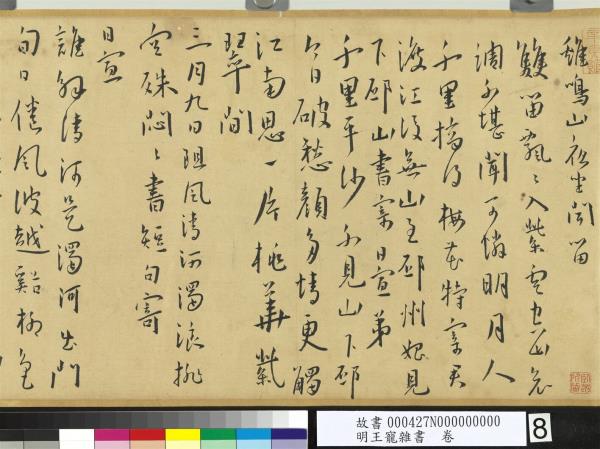 雞鳴山夜坐聞笛
雙笛飄〻入紫雲
調不堪聞可憐明月人
千里摘得梅花特寄君
渡江後無山至邳州始見
下邳山書寄日宣弟
千里平沙不見山下邳
今日破愁顏多情更觸
江南思一片桃華紫
翠間
三月九日阻風清河濁浪排
空殊悶〻書短句寄
日宣
誰解清河是濁河出門
旬日倦風波越谿柳色
故書 000427N000000000
明王寵雜書 卷
8